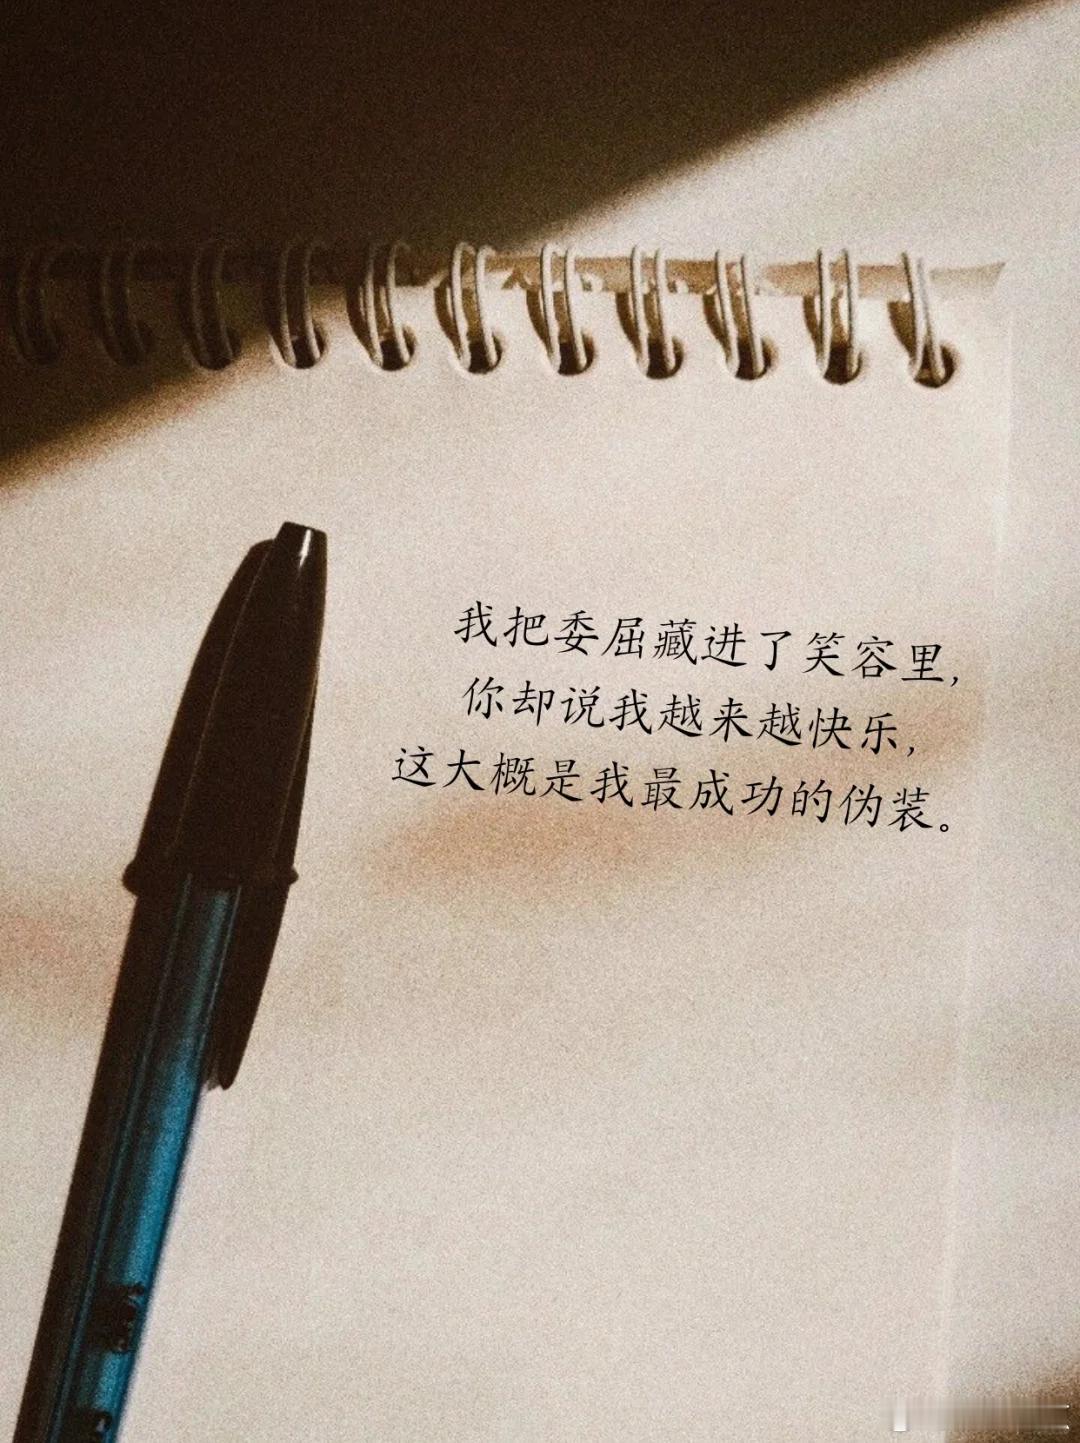 我把委屈藏进了笑容里,
你却说我越来越快乐,
这大概是我最成功的伪装。